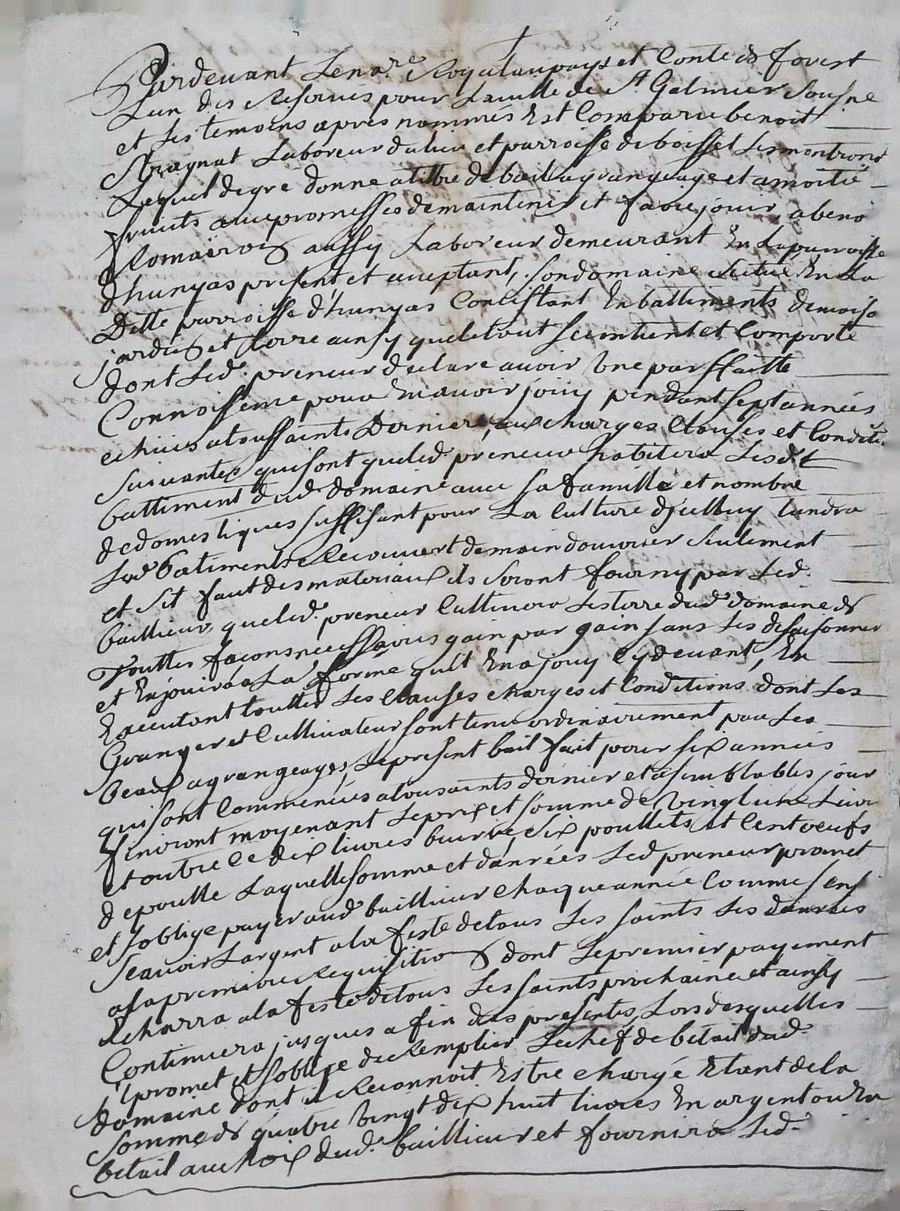 Pardevant Le nore Royal au pays et Conté de forest
Lun des Reservés pour La ville de St Galmier Sousne
et Les temoins apres nommés Est Comparu benoit
Laboreur du lieu et parroisse de boisset Les montrond
Lequel de gre donne a tiltre de bail a grangeage et a moitié
fruits avec promesses de maintenir et faire jouir a benoi
aussy Laboreur demeurant En La parroisse
d'hunyas present et aceptant, son domaine scitué En La
Ditte parroisse d'hunyas Consistant En battiments de maiso
jardin et terre ainsy que le tout se contient et Comporte
dont Led. preneur declare avoir Une parffaitte
Connoissence pour En avoir jouy pendant sept années
echues a toussaints Dernier, aux charges Clauses et Conditi
suivantes qui sont que led. preneur habitera Lesdt
battiment dud. domaine avec sa famille et nombre
de domestiques suffisant pour La Culture d'icelluy tiendra
Led. batiments Recouvert de main d'ouvrier seulement
et s'il faut des materiaux ils seront fourny par Led.
baillieur que led. preneur Cultivera Les terre dud. domaine de
Touttes façons necessaires gain par gain sans Les desaisonner
et En jouira a La forme qu'il En a jouy Cy devant, En
Executant toutter Les Clauses charges et Conditions dont Les
Granger et Cultivateur sont tenu ordinairement par Les
beaux a grangeages, Le present bail fait pour six années
qui sont Commencées a tousaints dernier et a semblables jour
finiront moyenant Le prix et somme de vingt Livr
et outre ce dix livres burre, six poullets et Cent oeufs
de poulle Laquelle somme et danrées Led. preneur promet
et s'oblige payer aud. baillieur chaque année Comme s'ens
Scavoir L'argent a la feste de tous Les saints Les danrées
a sa premiere Requisition dont Le premier payement
Echerra a la feste de tous Les saints prochaine et ainsy
Continuera jusques a fin des presentes, Lors desquelles
il promet et s'oblige de Remplier Le chef de betail dud.
domaine dont il Reconnoit Estre chargé Etant de la
Somme de quatre Vingt dix huit livres En argent ou En
betail au choix dud. baillieur et fournira Led.